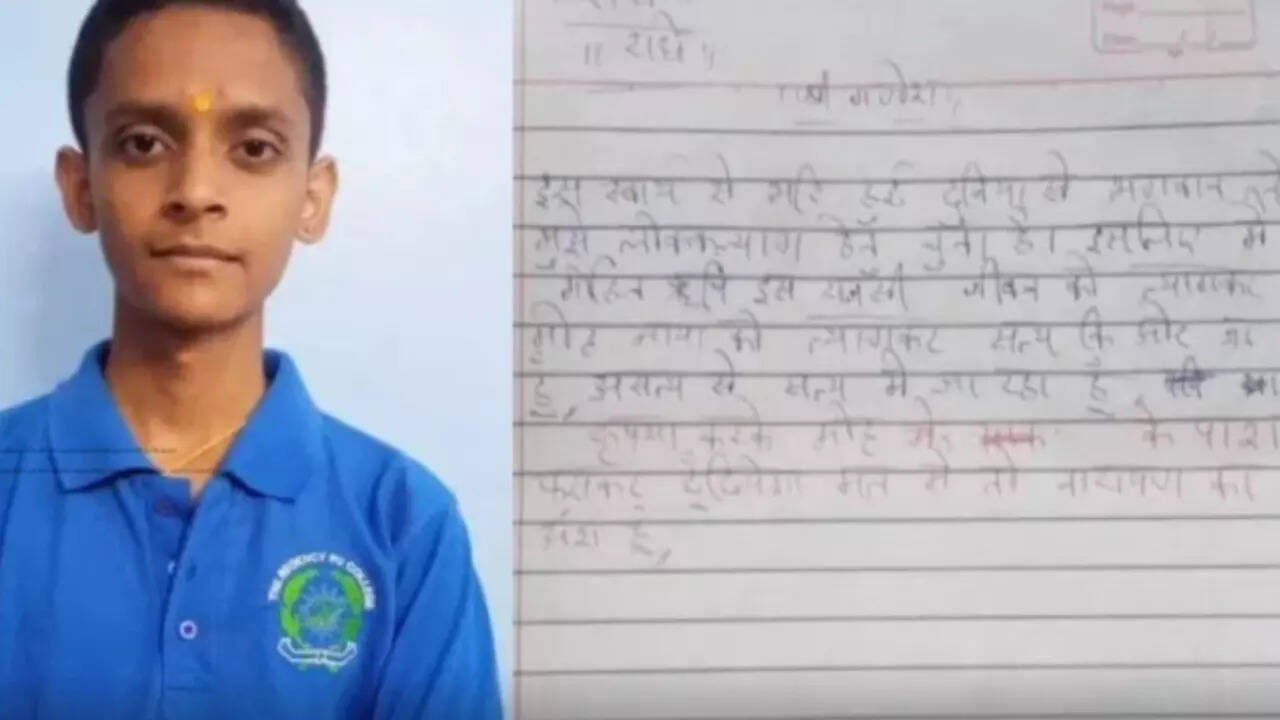 THE REGENCY PU COLLEGE
॥ राधे ॥
इस स्वार्थ से भरि हुई दुनिया से भगवान ने
मुझे लोककल्याण हेतु चुना है। इसलिए मे
मोहित ऋषि इस राजसी जीवन को त्यागकर
मोह माया को त्यागकर सत्य कि ओर जा
हूं, असत्य से सत्य मे जा रहा हूं
कृपया करके मोह के पाश
ढूंढियेगा मत मे तो नारायण का
अंश हूं,